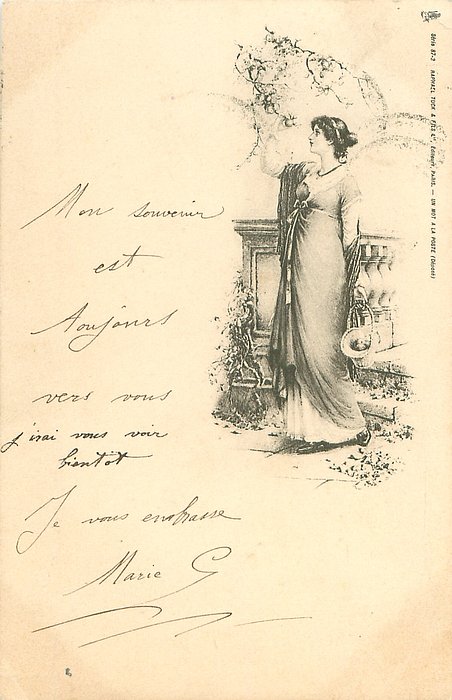 Mon souvenir
est
toujours
vers vous
j'irai vous voir
bientot
Je vous embrasse
Marie G
Série 87-2 RAPHAEL TUCK & FILS Lᵈ, Editeurs, PARIS. — UN MOT A LA POSTE (Déposé)